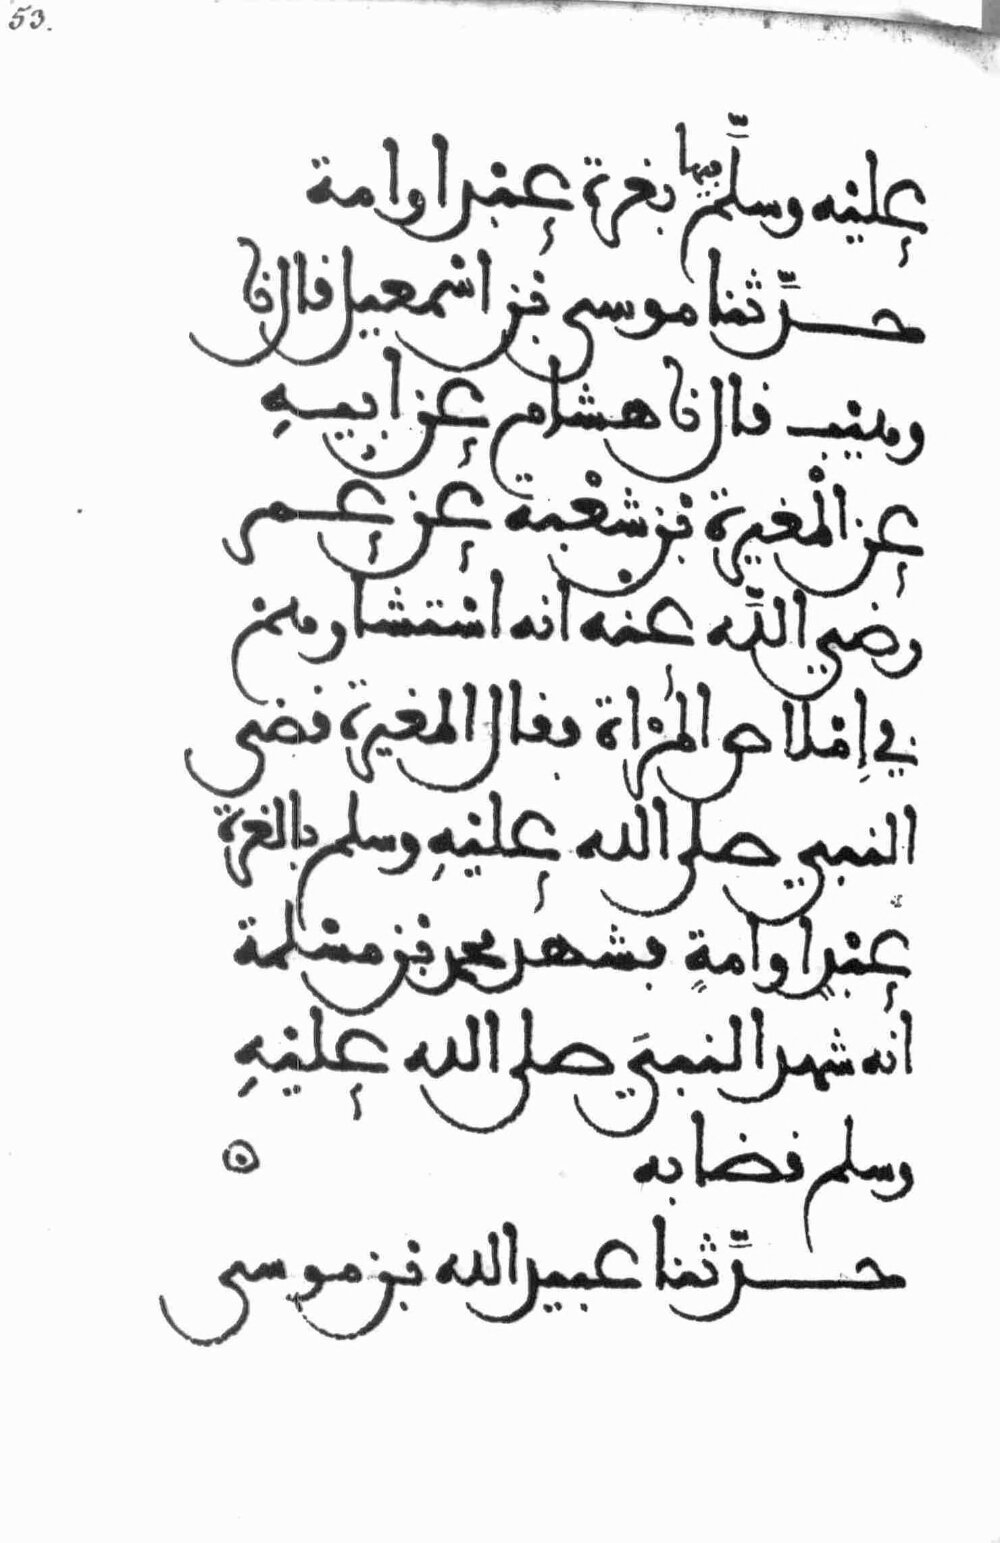 53.
عليه وسلم فيها بغرة عبد او امة
حدثنا موسى بن اسمعيل قال نا
وهيب قال نا هشام عن ابيه
عن المغيرة بن شعبة عن عمر
رضي الله عنه انه استشارهم
في إملاص المرأة فقال المغيرة قضى
النبي صلى الله عليه وسلم بالغرة
عبد او امة فشهد محمد بن مسلمة
انه شهد النبي صلى الله عليه
وسلم قضا به
حدثنا عبيد الله بن موسى